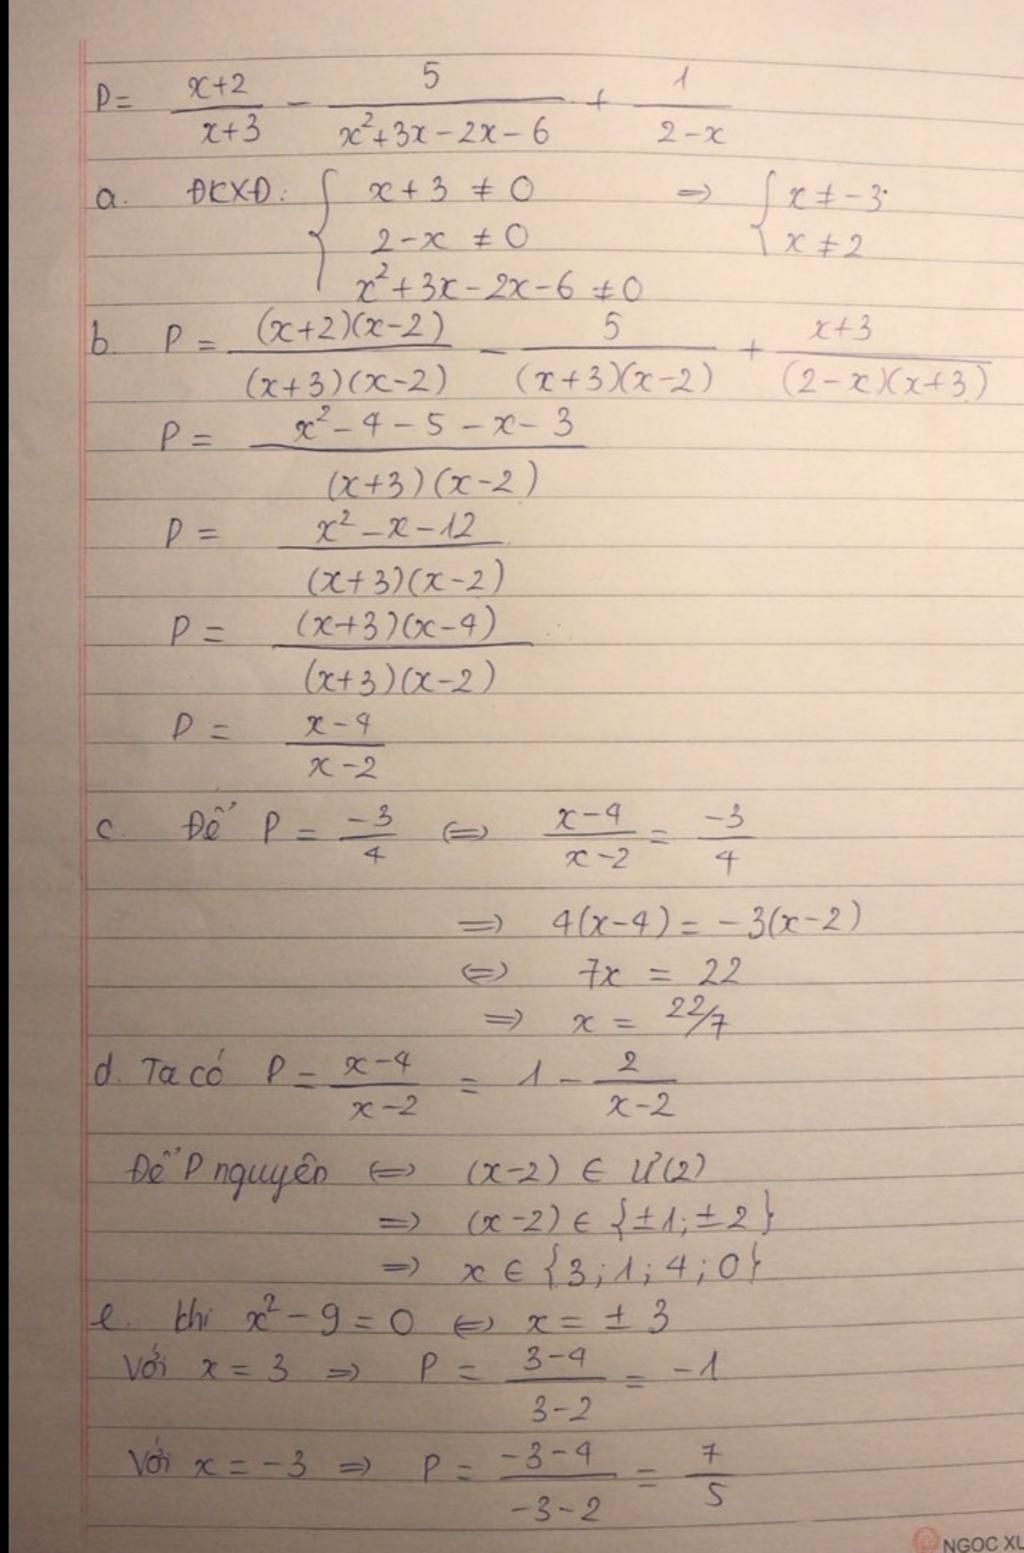 P = \frac{x+2}{x+3} - \frac{5}{x^2+3x-2x-6} + \frac{1}{2-x}
a. ĐKXĐ: { x+3 ≠ 0 ⇒ { x ≠ -3
2-x ≠ 0 x ≠ 2
x^2+3x-2x-6 ≠ 0
b. P = \frac{(x+2)(x-2)}{(x+3)(x-2)} - \frac{5}{(x+3)(x-2)} + \frac{x+3}{(2-x)(x+3)}
P = \frac{x^2-4-5-x-3}{(x+3)(x-2)}
P = \frac{x^2-x-12}{(x+3)(x-2)}
P = \frac{(x+3)(x-4)}{(x+3)(x-2)}
P = \frac{x-4}{x-2}
c. Để P = \frac{-3}{4} ⇔ \frac{x-4}{x-2} = \frac{-3}{4}
⇒ 4(x-4) = -3(x-2)
⇔ 7x = 22
⇒ x = 22/7
d. Ta có P = \frac{x-4}{x-2} = 1 - \frac{2}{x-2}
Để P nguyên ⇔ (x-2) ∈ Ư(2)
⇒ (x-2) ∈ {±1; ±2}
⇒ x ∈ {3; 1; 4; 0}
e. khi x^2-9=0 ⇔ x = ±3
Với x = 3 ⇒ P = \frac{3-4}{3-2} = -1
Với x = -3 ⇒ P = \frac{-3-4}{-3-2} = \frac{7}{5}
NGOC XU